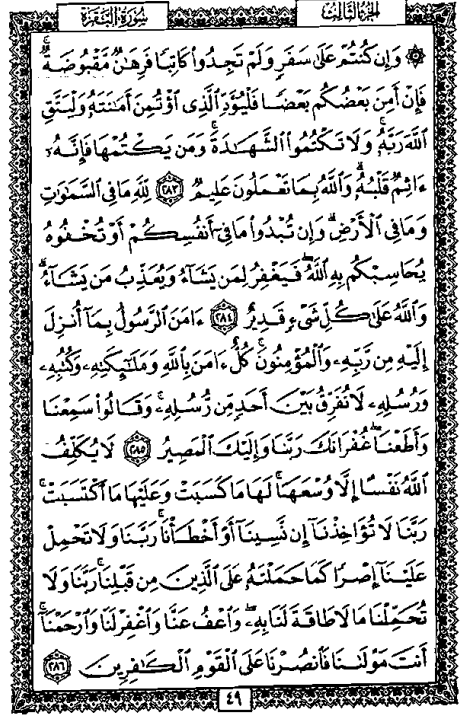 الجزء الثالث
سورة البقرة
۞ وَإِن كُنتُمْ عَلَىٰ سَفَرٍ وَلَمْ تَجِدُوا۟ كَاتِبًا فَرِهَٰنٌ مَّقْبُوضَةٌ ۖ
فَإِنْ أَمِنَ بَعْضُكُم بَعْضًا فَلْيُؤَدِّ ٱلَّذِى ٱؤْتُمِنَ أَمَٰنَتَهُۥ وَلْيَتَّقِ
ٱللَّهَ رَبَّهُۥ ۗ وَلَا تَكْتُمُوا۟ ٱلشَّهَٰدَةَ ۚ وَمَن يَكْتُمْهَا فَإِنَّهُۥٓ
ءَاثِمٌ قَلْبُهُۥ ۗ وَٱللَّهُ بِمَا تَعْمَلُونَ عَلِيمٌ ٢٨٣ لِّلَّهِ مَا فِى ٱلسَّمَٰوَٰتِ
وَمَا فِى ٱلْأَرْضِ ۗ وَإِن تُبْدُوا۟ مَا فِىٓ أَنفُسِكُمْ أَوْ تُخْفُوهُ
يُحَاسِبْكُم بِهِ ٱللَّهُ ۖ فَيَغْفِرُ لِمَن يَشَآءُ وَيُعَذِّبُ مَن يَشَآءُ ۗ
وَٱللَّهُ عَلَىٰ كُلِّ شَىْءٍ قَدِيرٌ ٢٨٤ ءَامَنَ ٱلرَّسُولُ بِمَآ أُنزِلَ
إِلَيْهِ مِن رَّبِّهِۦ وَٱلْمُؤْمِنُونَ ۚ كُلٌّ ءَامَنَ بِٱللَّهِ وَمَلَٰٓئِكَتِهِۦ وَكُتُبِهِۦ
وَرُسُلِهِۦ لَا نُفَرِّقُ بَيْنَ أَحَدٍ مِّن رُّسُلِهِۦ ۚ وَقَالُوا۟ سَمِعْنَا
وَأَطَعْنَا ۖ غُفْرَانَكَ رَبَّنَا وَإِلَيْكَ ٱلْمَصِيرُ ٢٨٥ لَا يُكَلِّفُ
ٱللَّهُ نَفْسًا إِلَّا وُسْعَهَا ۚ لَهَا مَا كَسَبَتْ وَعَلَيْهَا مَا ٱكْتَسَبَتْ ۗ
رَبَّنَا لَا تُؤَاخِذْنَآ إِن نَّسِينَآ أَوْ أَخْطَأْنَا ۚ رَبَّنَا وَلَا تَحْمِلْ
عَلَيْنَآ إِصْرًا كَمَا حَمَلْتَهُۥ عَلَى ٱلَّذِينَ مِن قَبْلِنَا ۚ رَبَّنَا وَلَا
تُحَمِّلْنَا مَا لَا طَاقَةَ لَنَا بِهِۦ ۖ وَٱعْفُ عَنَّا وَٱغْفِرْ لَنَا وَٱرْحَمْنَآ ۚ
أَنتَ مَوْلَىٰنَا فَٱنصُرْنَا عَلَى ٱلْقَوْمِ ٱلْكَٰفِرِينَ ٢٨٦
٤٩